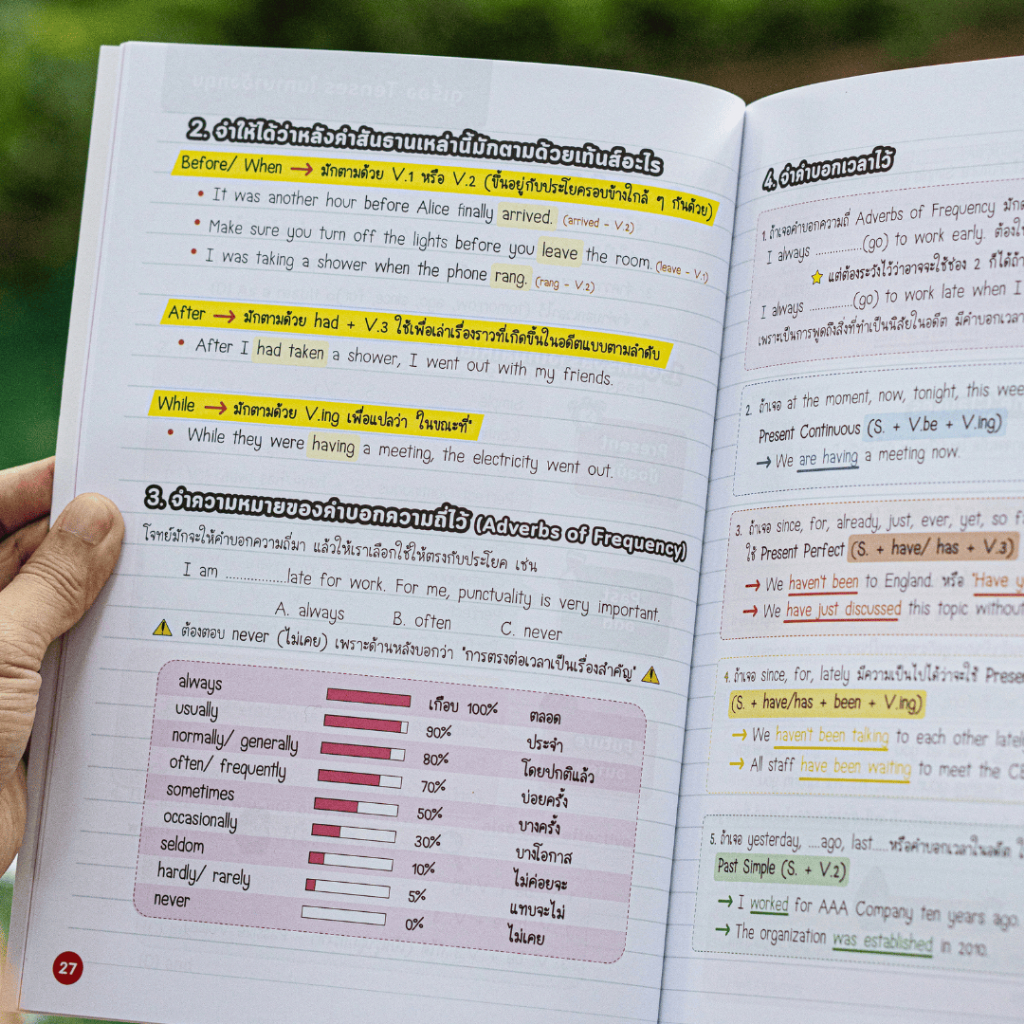 2. จำให้ได้ว่าหลังคำสันธานเหล่านี้มักตามด้วยเท้นส์อะไร
Before/ When → มักตามด้วย V.1 หรือ V.2 (ขึ้นอยู่กับประโยครอบข้างใกล้ ๆ กันด้วย)
• It was another hour before Alice finally arrived. (arrived - V.2)
• Make sure you turn off the lights before you leave the room. (leave - V.1)
• I was taking a shower when the phone rang. (rang - V.2)
After → มักตามด้วย had + V.3 ใช้เพื่อเล่าเรื่องราวที่เกิดขึ้นในอดีตแบบตามลำดับ
• After I had taken a shower, I went out with my friends.
While → มักตามด้วย V.ing เพื่อแปลว่า "ในขณะที่"
• While they were having a meeting, the electricity went out.
3. จำความหมายของคำบอกความถี่ไว้ (Adverbs of Frequency)
โจทย์มักจะให้คำบอกความถี่มา แล้วให้เราเลือกใช้ให้ตรงกับประโยค เช่น
I am ................late for work. For me, punctuality is very important.
A. always B. often C. never
ต้องตอบ never (ไม่เคย) เพราะด้านหลังบอกว่า "การตรงต่อเวลาเป็นเรื่องสำคัญ"
always เกือบ 100% ตลอด
usually 90% ประจำ
normally/ generally 80% โดยปกติแล้ว
often/ frequently 70% บ่อยครั้ง
sometimes 50% บางครั้ง
occasionally 30% บางโอกาส
seldom 10% ไม่ค่อยจะ
hardly/ rarely 5% แทบจะไม่
never 0% ไม่เคย
27
4. จำคำบอกเวลาไว้
1. ถ้าเจอคำบอกความถี่ Adverbs of Frequency
I always ............(go) to work early. ต้อง
แต่ต้องระวังไว้ว่าอาจจะใช้ช่อง 2 ก็ได้
I always ............(go) to work late when I
เพราะเป็นการพูดถึงสิ่งที่ทำเป็นนิสัยในอดีต มีคำบอก
2. ถ้าเจอ at the moment, now, tonight, this
Present Continuous (S. + V.be + V.ing)
→ We are having a meeting now.
3. ถ้าเจอ since, for, already, just, ever, yet, so
ใช้ Present Perfect (S. + have/ has + V.3)
→ We haven't been to England. หรือ "Have
→ We have just discussed this topic
4. ถ้าเจอ since, for, lately มีความเป็นไปได้ว่าจะใช้
(S. + have/has + been + V.ing)
→ We haven't been talking to each other
→ All staff have been waiting to meet the
5. ถ้าเจอ yesterday, ....ago, last.... หรือคำบอกเวลาในอดีต
Past Simple (S. + V.2)
→ I worked for AAA Company ten years ago.
→ The organization was established in 2010.